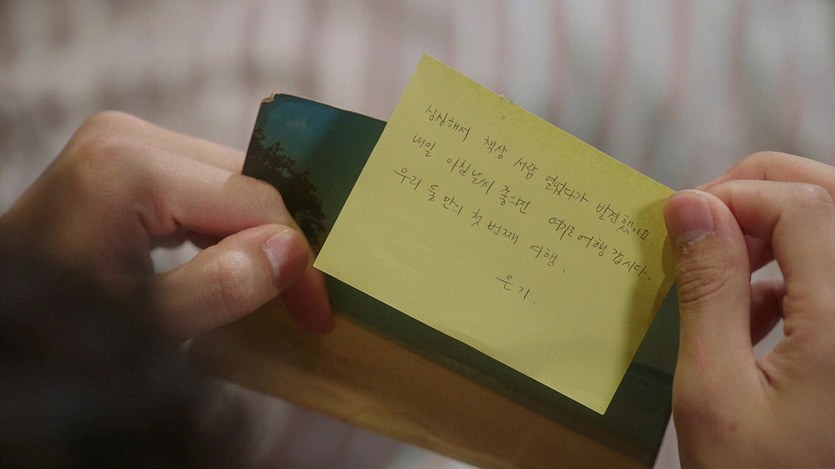 심심해서 책상 서랍 열었다가 발견했어요.
내일 아침 날씨 좋으면 여기로 여행 갑시다.
우리 둘 만의 첫 번째 여행.
은기.